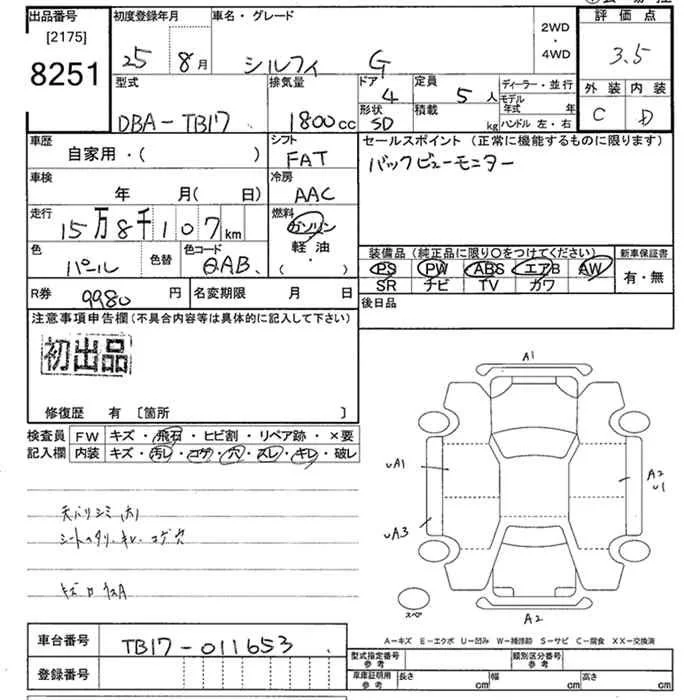 出品番号
[2175]
8251
初度登録年月
25 8月
車名・グレード
シルフィ G
2WD
・
4WD
評価点
3.5
外装 内装
C D
型式
DBA-TB17
排気量
1800cc
ドア
4
形状
SD
定員
5人
積載
kg
ディーラー・並行
モデル年式 年
ハンドル 左・右
車歴
自家用・( )
シフト
FAT
車検
年 月(日)
冷房
AAC
走行
15万8千107km
燃料
ガソリン
軽・油
・( )
色
パール
色替
色コード
QAB
R券
9980円
名変期限 月 日
セールスポイント(正常に機能するものに限ります)
バックビューモニター
装備品(純正品に限り○をつけてください)
PS PW ABS エアB AW
SR チビ TV カワ
新車保証書
有・無
後日品
注意事項申告欄(不具合内容等は具体的に記入して下さい)
初出品
修復歴 有 〔箇所 〕
検査員
記入欄
FW キズ・飛石・ヒビ割・リペア跡・×要
内装 キズ・汚レ・コゲ・穴・スレ・キレ・破レ
天バリシミ(大)
シートヘタリ・キレ・コゲ穴
A1
uA1
uA3
A2
U1
A2
スペア
A-キズ E-エクボ U-凹み W-補修跡 S-サビ C-腐食 XX-交換済
車台番号
TB17-011653
登録番号
型式指定番号
参考
類別区分番号
参考
車庫証明用
参考
長さ cm
幅 cm
高さ cm